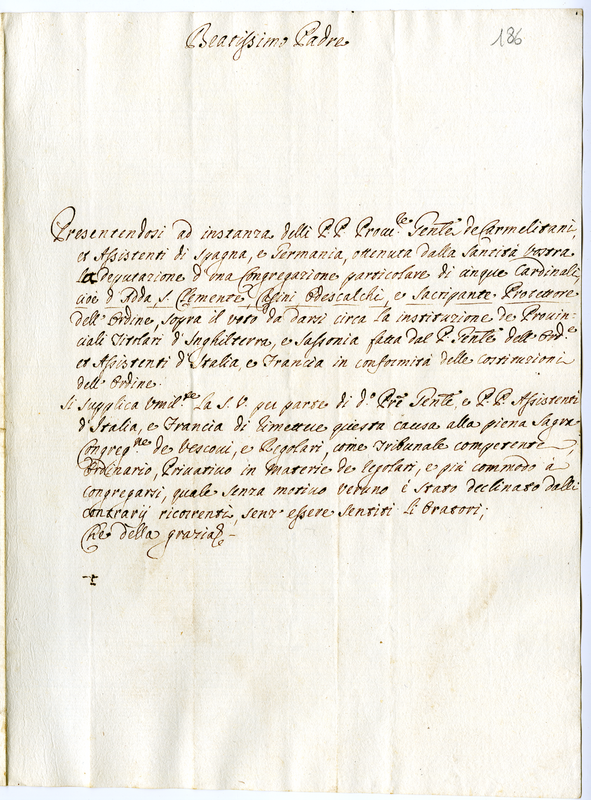 Beatissimo Padre
186
Presentendosi ad instanza delli P.P. Proc.le Gen.le de Carmelitani,
et Assistenti di Spagna, e Germania, ottenuta dalla Santità Vostra
la deputazione d'una Congregazione particolare di cinque Cardinali,
cioè d'Adda, S. Clemente, Casini, Odescalchi, e Sacripante Protettore
dell'Ordine, sopra il voto da darsi circa la instituzione de Provin:
ciali Titolari d'Inghilterra, e Sassonia fatta dal P. Gen.le dell'Ord.e
et Assistenti d'Italia, e Francia in conformità delle costituzioni
dell'Ordine.
Si supplica Umil.te la S.V. per parte di d.o P.re Gen.le e P.P. Assistenti
d'Italia, e Francia di rimettere questa causa alla piena Sagra
Congreg.ne de Vescovi, e Regolari, come Tribunale competente,
Ordinario, Privativo in materie de Regolari, e più commodo à
congregarsi, quale senza motivo veruno è stato declinato dalli
contrarij ricorrenti, senz'essere sentiti li Oratori;
Che della grazia &.